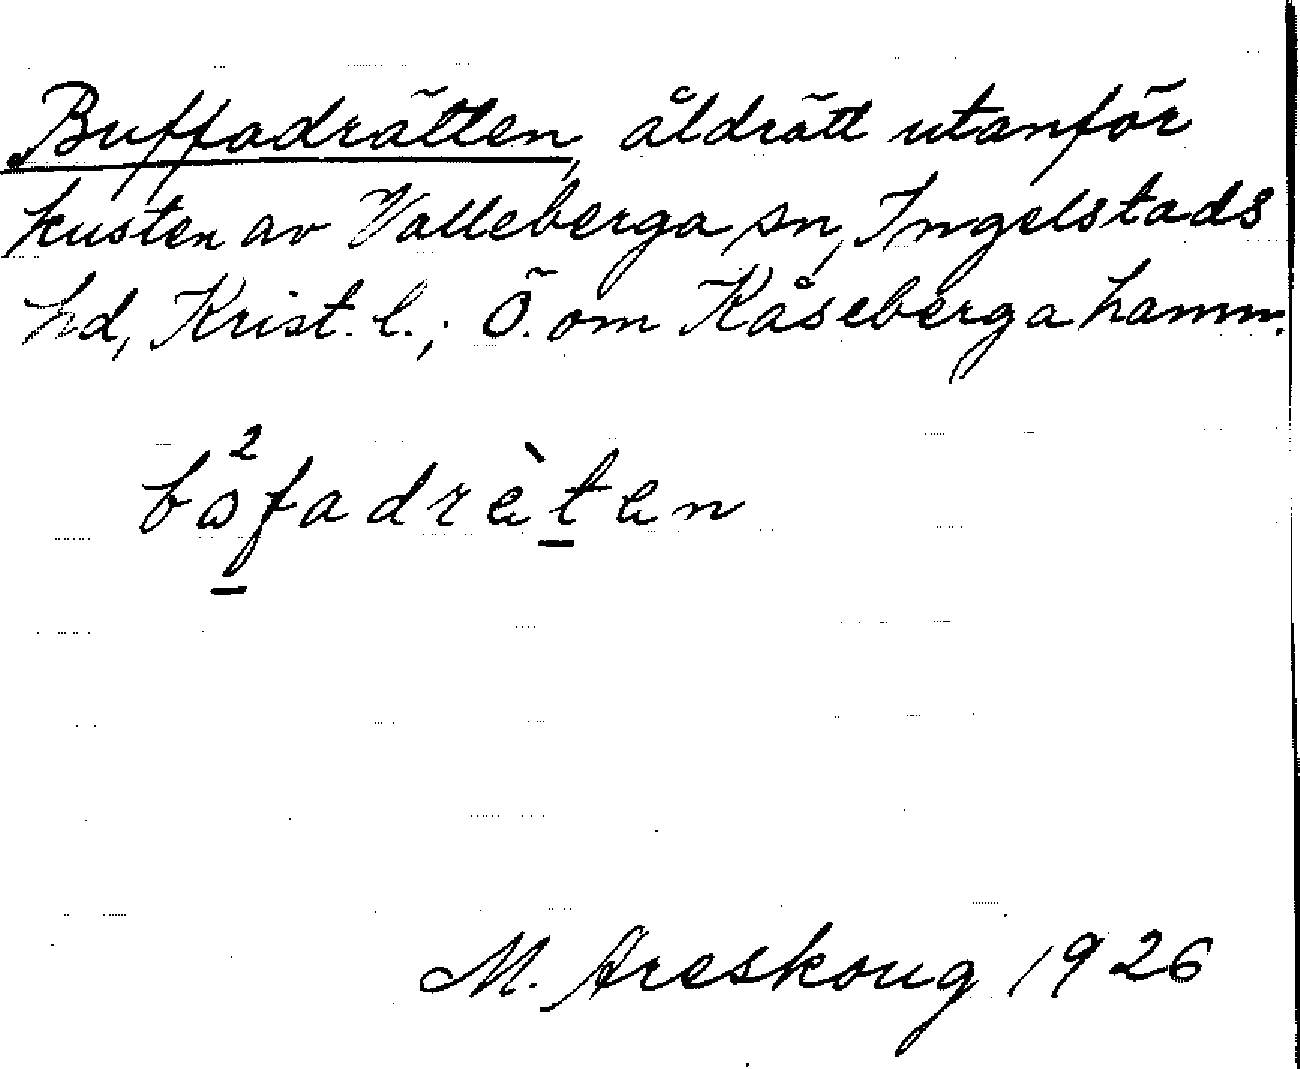 Buffadrätten, åldrätt utanför
kusten av Valleberga sn, Ingelstads
hd, Krist. l.; Ö. om Kåseberga hamn.
bo²fadrèten
M. Areskoug 1926